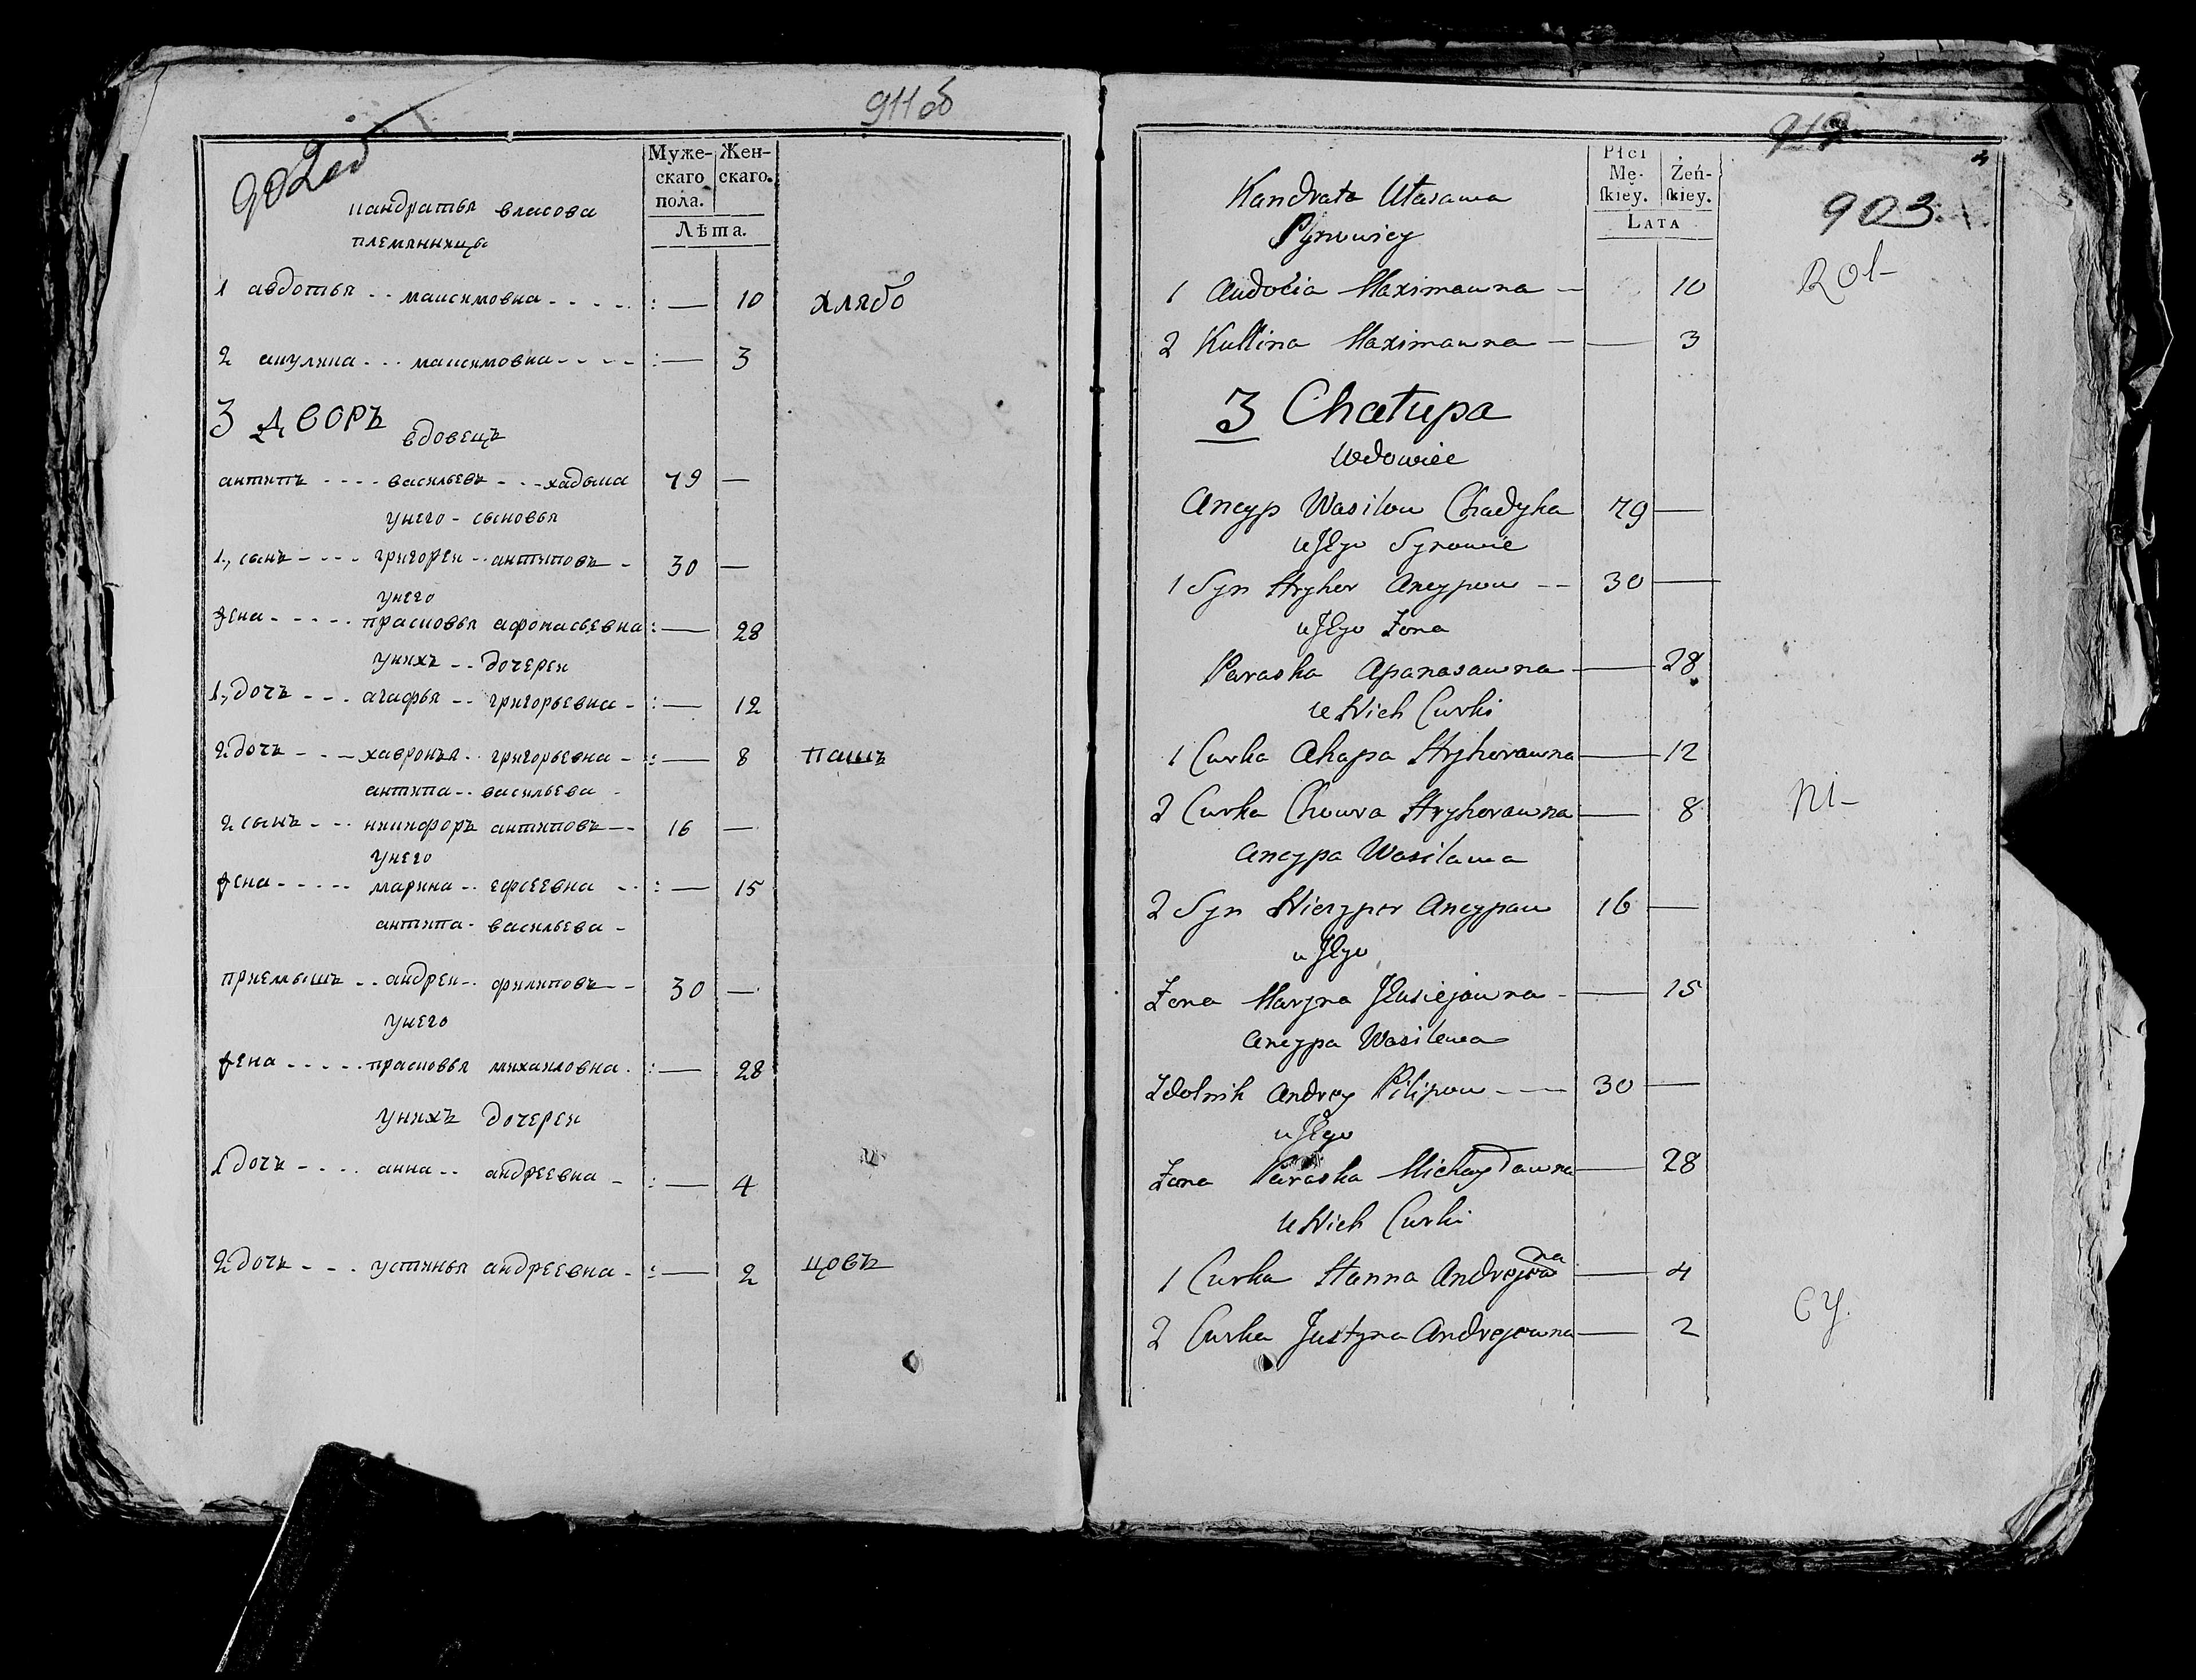 911об
902об
Муже-
скаго
пола.
Жен-
скаго.
Лѣта.
кандратья власова
племянницы
1 авдотья максимовна : — 10 хлябо
2 акулина максимовна : — 3
3 дворъ
вдовецъ
антипъ васильевъ хадыка 79 —
унего сыновья
1, сынъ григореи антиповъ 30 —
унего
жена прасковья афонасьевна : — 28
унихъ дочереи
1, дочь агафья григорьевна : — 12
2 дочь хавронья григорьевна : — 8 пашъ
антипа васильева
2 сынъ никифоръ антиповъ 16 —
унего
жена марина ефсеевна : — 15
антипа васильева
приемышъ андреи филиповъ 30 —
унего
жена прасковья михаиловна : — 28
унихъ дочереи
1 дочь анна андреевна : — 4
2 дочь устинья андреевна : — 2 цовъ
912
903
Płci
Mę-
ſkiey.
Żeń-
ſkiey.
Lata
Kandrata Ułasawa
1 Audocia Maximawna — 10 Rol-
2 Kullina Maximawna — — 3
3 Chałupa
Wdowiec
Ancyp Wasilow Chadyka 79 —
u Jego Synowie
1 Syn Hryhor Ancypow 30 —
u Jego Żona
Paraska Apanasawna — 28
u Nich Curki
1 Curka Ahapa Hryhorawna — 12
2 Curka Chowra Hryhorawna — 8 ni-
Ancypa Wasilawa
2 Syn Niczyper Ancypaw 16 —
u Jego
Żona Maryna Jeusiejawna — 15
Ancypa Wasilewa
Zdolnik Andrey Pilipow 30 —
u Jego
Żona Paraska Michayławna — 28
u Nich Curki
1 Curka Hanna Andrejewna — 4
2 Curka Justyna Andrejewna — 2 cy.